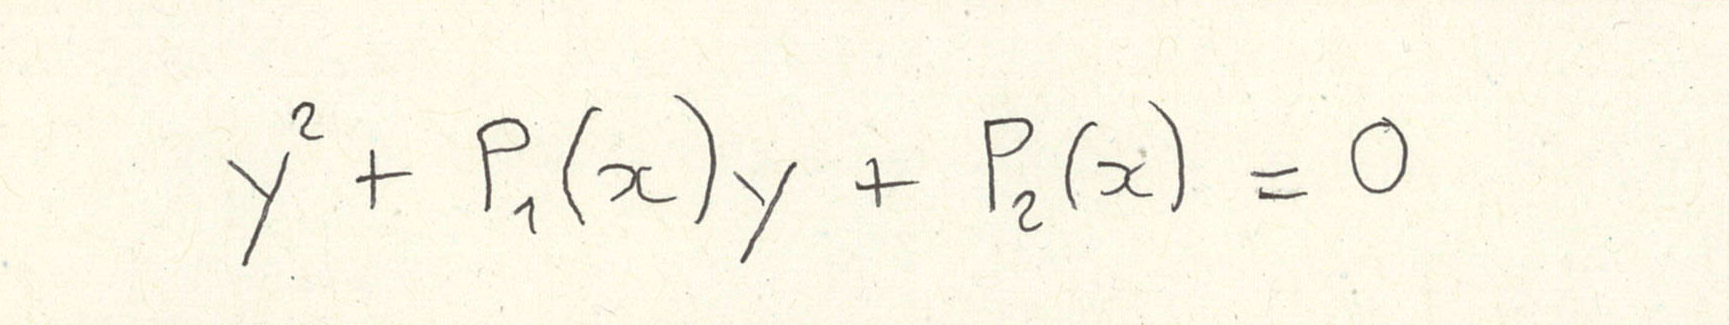 y² + P₁(x)y + P₂(x) = 0